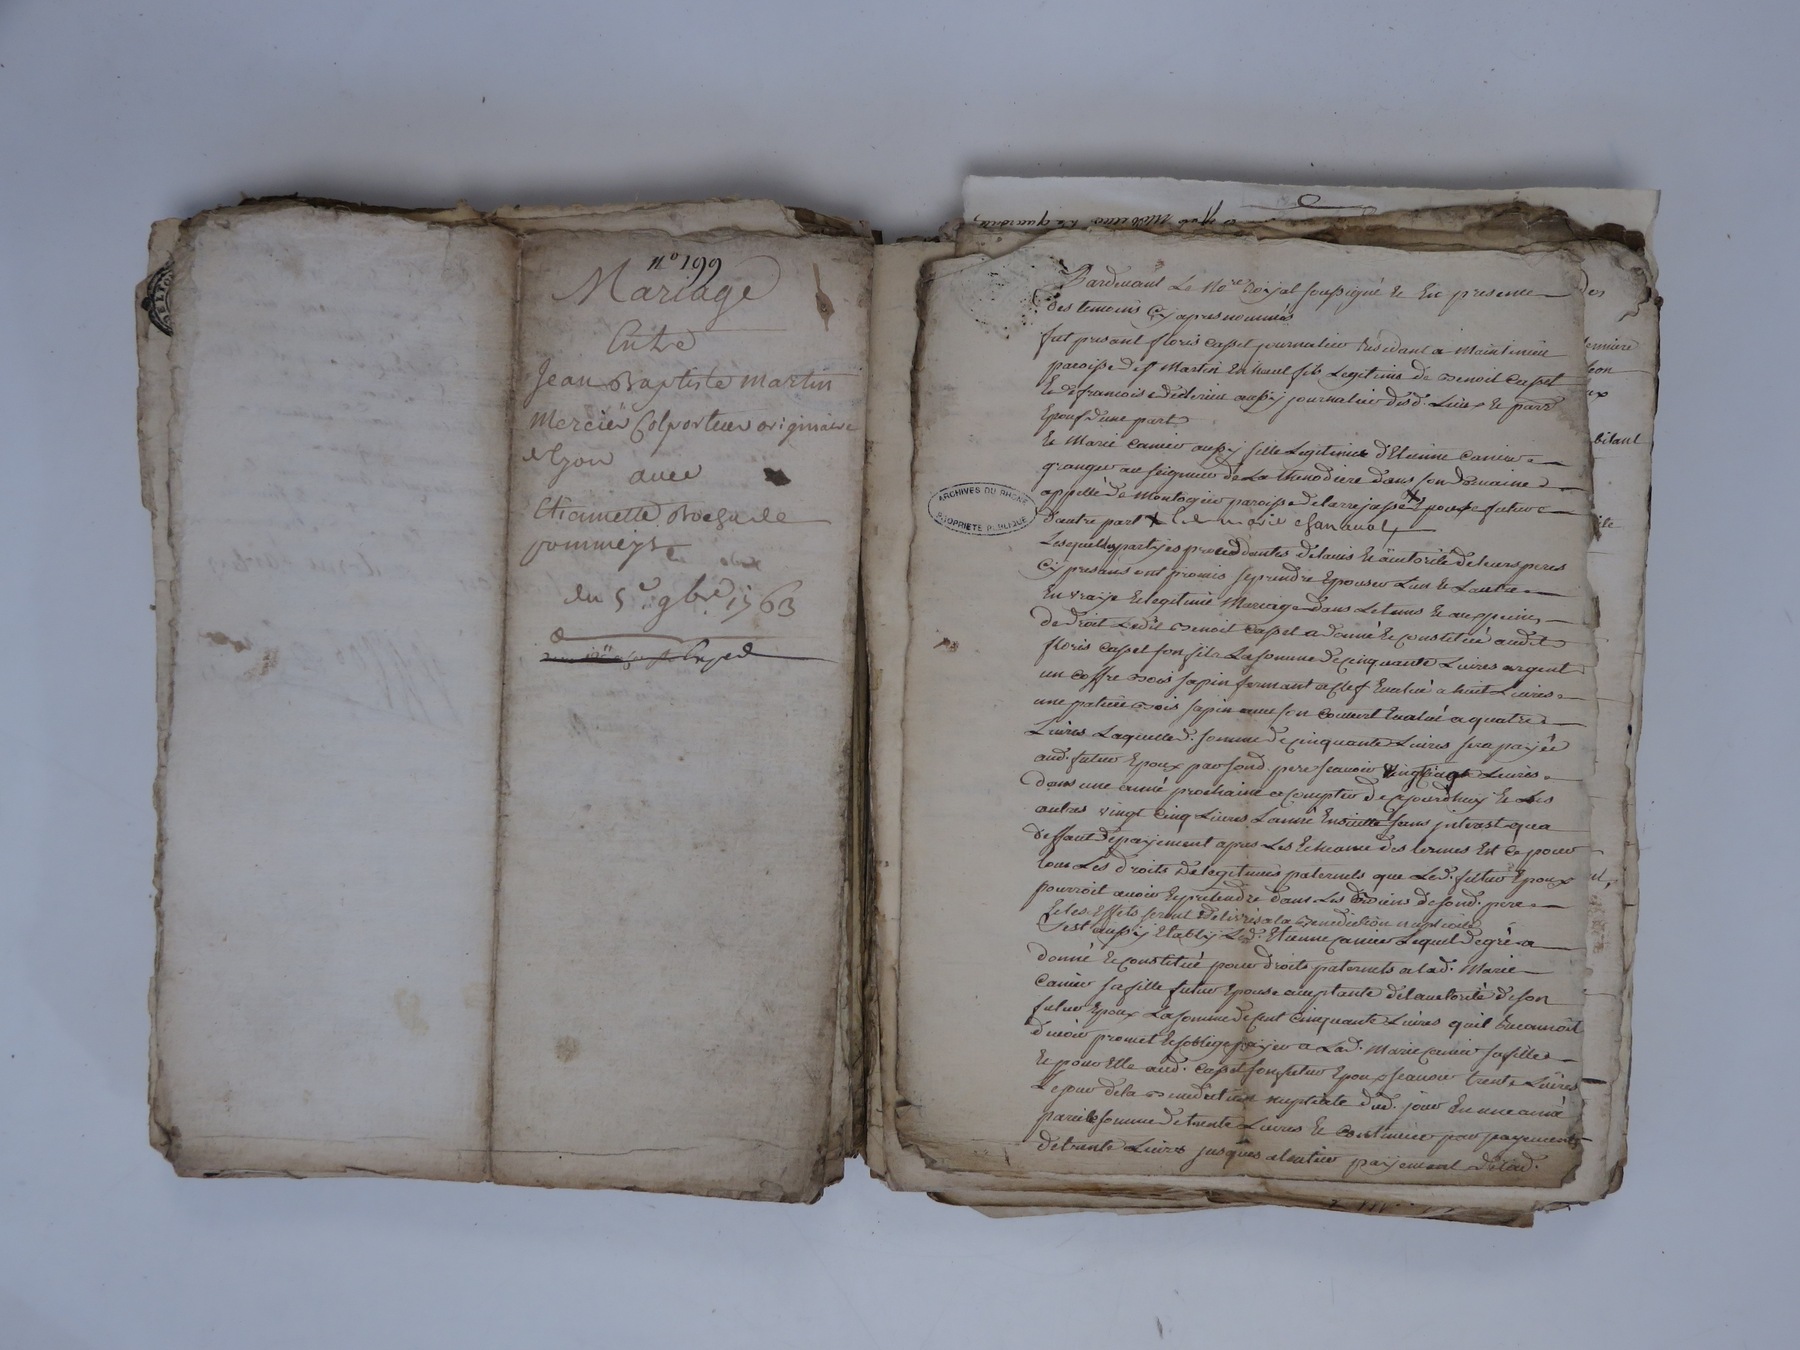 N° 199
Mariage
Entre
Jean Baptiste Martin
Mercier Colporteur originaire
de Lyon avec
Etiennette
pommeys
du 5e 9bre 1763
ARCHIVES DU RHONE
PROPRIETE PUBLIQUE
Pardevant Le Nore Royal soussigné Et En presence
des temoins Cy apres nommés
fut present floris Cassel journalier residant a Maintenüe
paroisse de st Martin En haut fils Legitime de Benoit Cassel
Et de francoise aussy journalier dud. Lieu et
Epoux d'une part
Et Marie Canier aussy fille Legitime d'Etienne Canier
granger au seigneur de La thenodiere dans son Domaine
appellé de Montogier paroisse de larrajasse Epouse future
d'autre part
Lesquelles partyes procedantes de lavis Et autorité de leurs peres
Cy presans ont promis se prendre Epouser Lun Et Lautre
En vraye Et legitime Mariage dans Le tems Et aux peines
de Droit Ledit Benoit Cassel a donné Et constitué audit
floris Cassel son fils La somme de cinquante Livres argent
un coffre Bois sapin fermant a clef Evalué a huit Livres
une Bois sapin avec son couvert Evalué a quatre
Livres Laquelle d. somme de cinquante Livres sera payée
aud. futur Epoux par sond. pere scavoir vingt cinq Livres
dans une année prochaine a compter de cejourdhuy Et Les
autres vingt cinq Livres L'année Ensuitte sans interest qua
deffaut de payement apres Les Echeance des termes Est Ce pour
tous Les droits de legitimes paternels que Led. futur Epoux
pourroit avoir Et pretendre dans Les Biens de sond. pere
Et les Effets seront délivrés a la Benediction nuptiale
s'est aussy Etably Led. Etienne Canier Lequel de gré a
donné Et constitué pour droits paternels a lad. Marie
Canier sa fille futur Epouse acceptante de lautorité de son
futur Epoux La somme de Cent Cinquante Livres quil
promet Et soblige payer a Lad. Marie Canier sa fille
Et pour Elle aud. Cassel son futur Epoux scavoir trente Livres
Le jour de la Benediction nuptiale dud. jour En une année
pareille somme de trente Livres Et continuer par payements
de trente Livres jusques a lentier payement de lad.